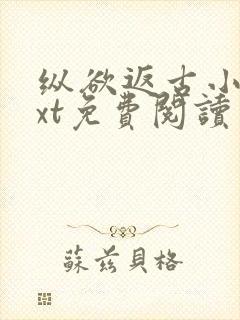 纵欲返古小
xt免費閱讀
蘇茲貝格